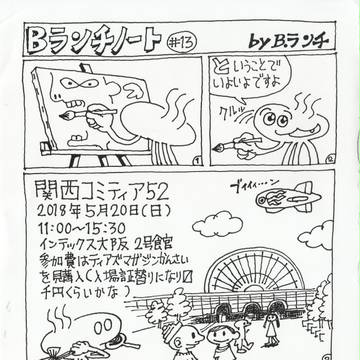 Bランチノート #13
by B.ランチ
という ことで
いよいよですよ
クルッ
1
2
関西コミティア52
2018年5月20日(日)
11:00〜15:30
インテックス大阪 2号館
参加費はティアズマガジンかんさい
を購入(入場証替りになり
千円くらいかな)
ブイィィ…ン